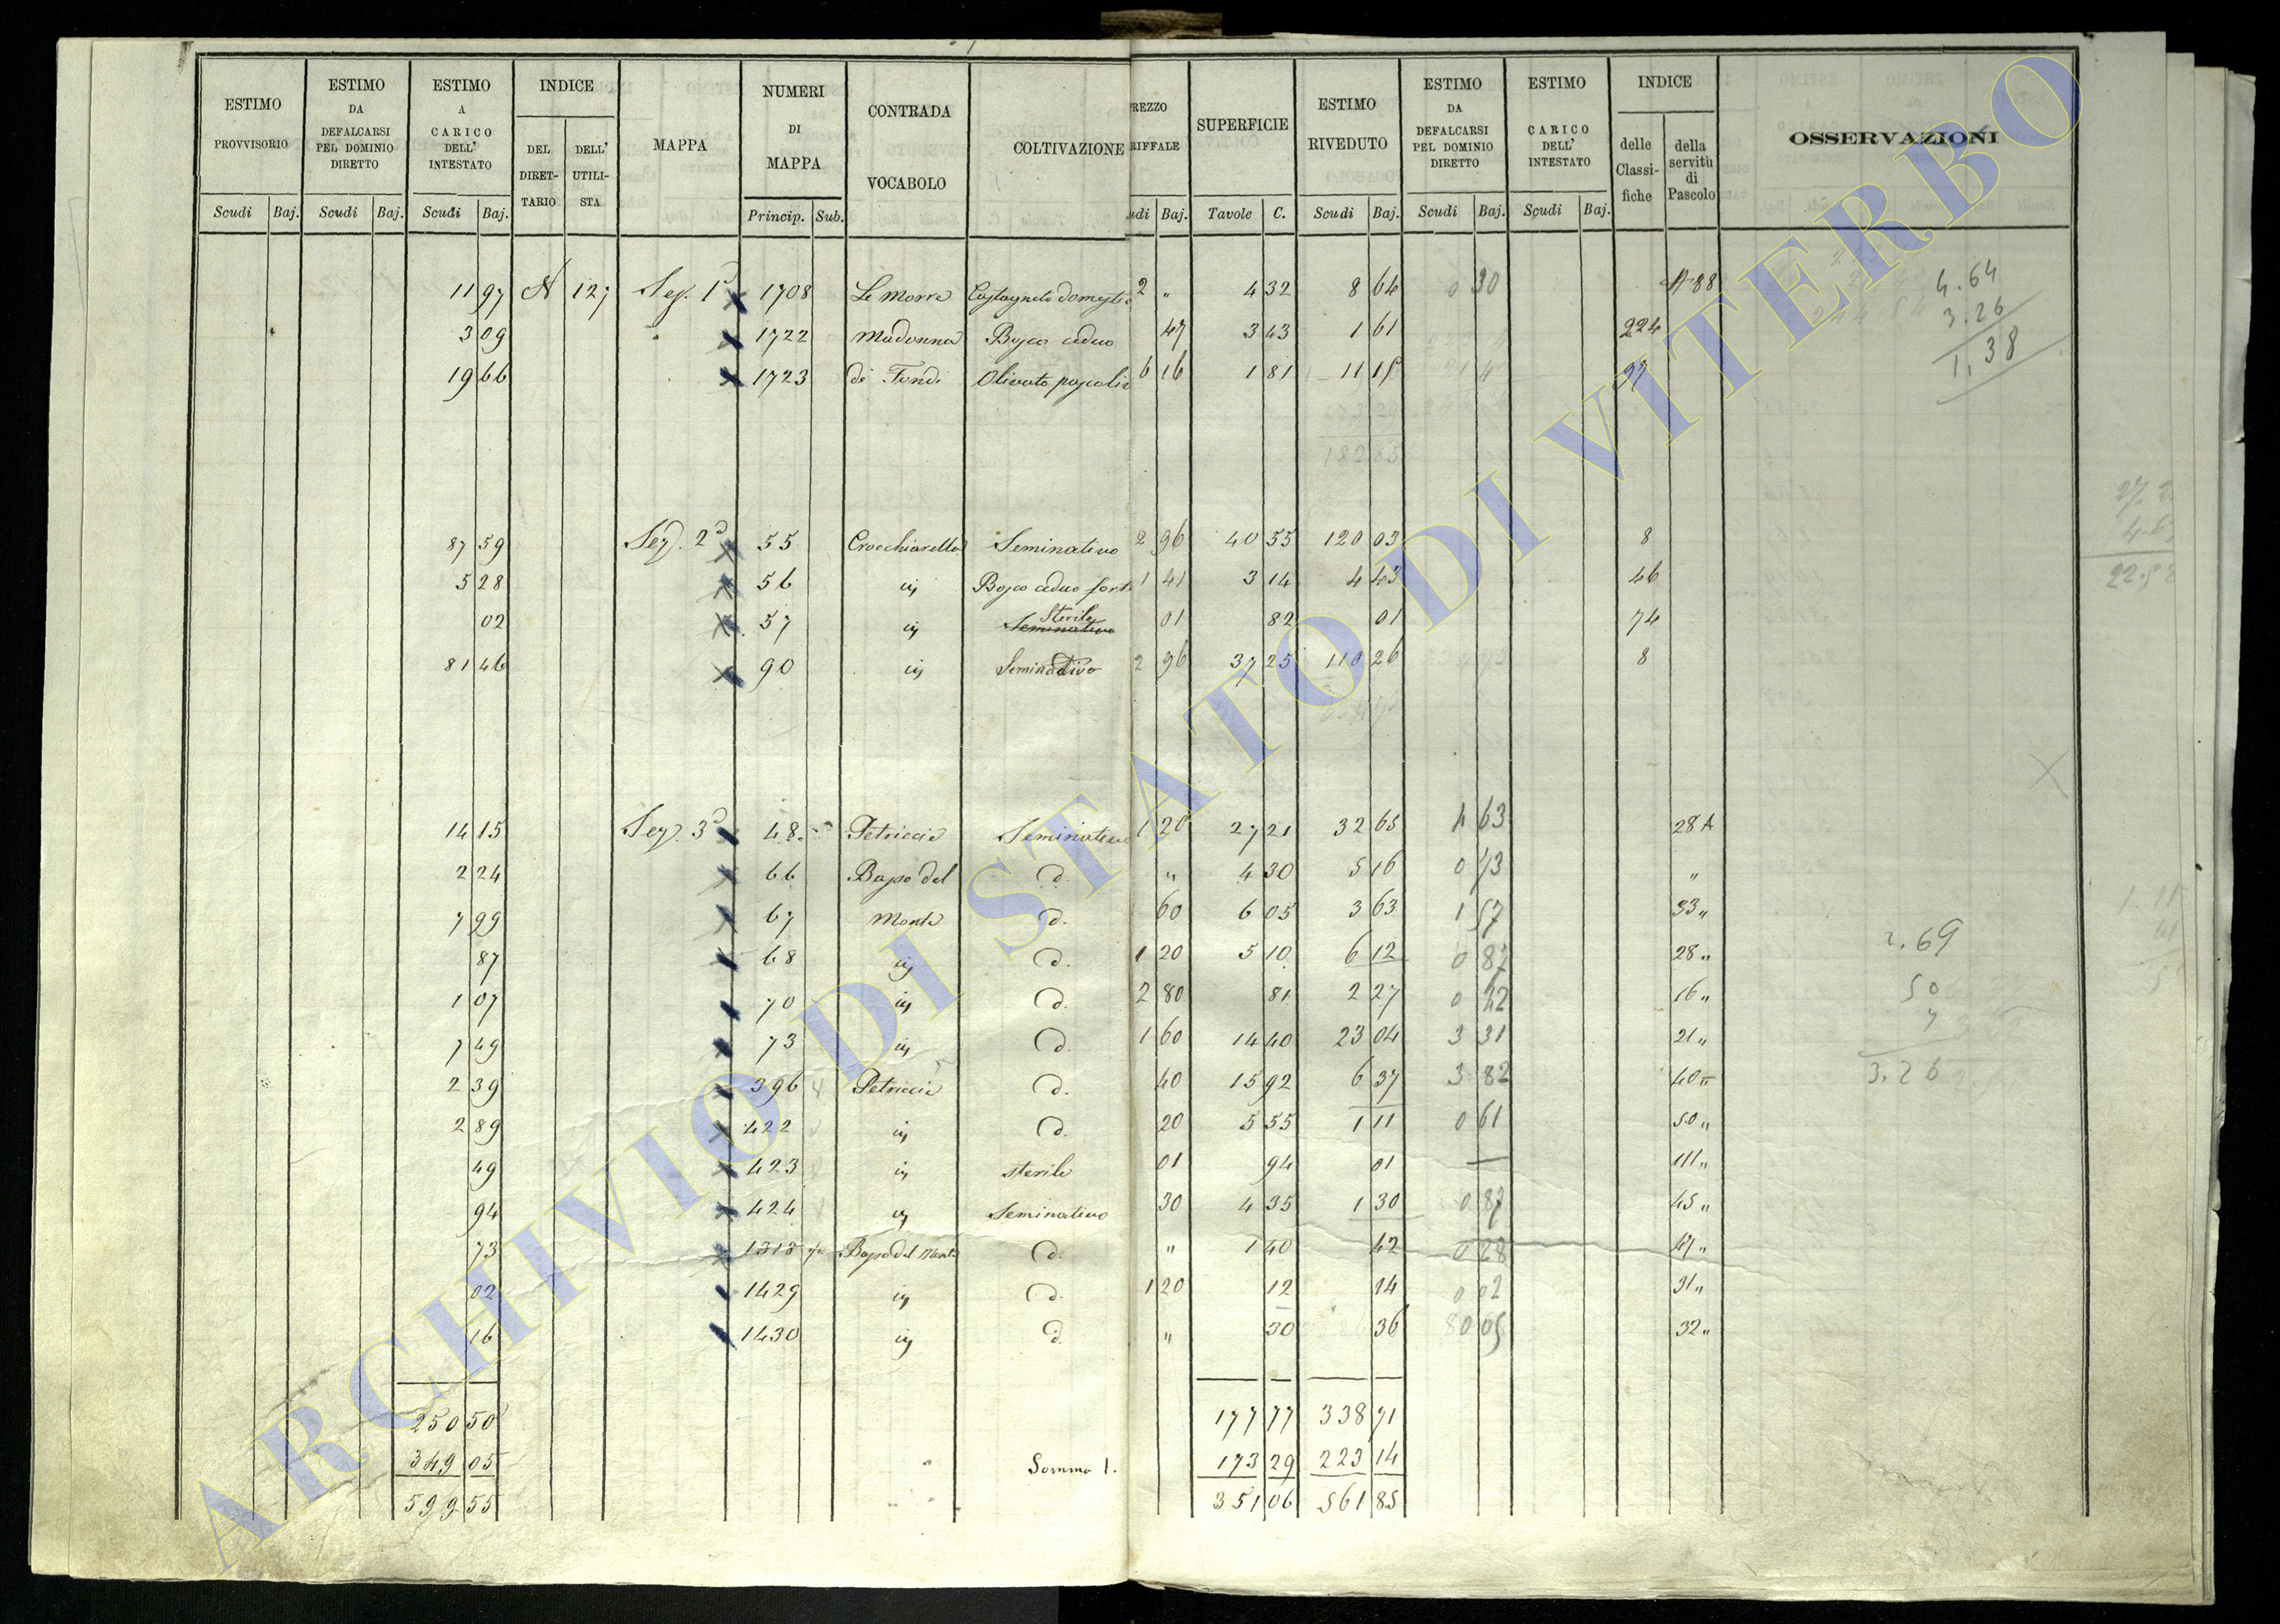 ESTIMO PROVVISORIO Scudi Baj. | ESTIMO DA DEFALCARSI PEL DOMINIO DIRETTO Scudi Baj. | ESTIMO A CARICO DELL' INTESTATO Scudi Baj. | INDICE DEL DIRET-TARIO | DELL' UTILI-STA | MAPPA | NUMERI DI MAPPA Princip. Sub. | CONTRADA VOCABOLO | COLTIVAZIONE | REZZO RIFFALE udi Baj. | SUPERFICIE Tavole C. | ESTIMO RIVEDUTO Scudi Baj. | ESTIMO DA DEFALCARSI PEL DOMINIO DIRETTO Scudi Baj. | ESTIMO CARICO DELL' INTESTATO Scudi Baj. | INDICE delle Classi-fiche | della servitù di Pascolo | OSSERVAZIONI
11 97 A 127 Sez. 1ª 1708 Le Morre Castagneto domestic 2 " 4 32 8 64 0 30 A 88 4.64
3 09 1722 Madonna Bosco ceduo 47 3 43 1 61 224 3.26
19 66 1723 di Fondi Olivato pascoliv 6 16 1 81 11 15 1,38
87 59 Sez. 2ª 55 Crocchiarella Seminativo 2 96 40 55 120 03 8
5 28 56 in Bosco ceduo fort 1 41 3 14 4 43 46
02 57 in Sterile Seminativo 01 82 01 74
81 46 90 in Seminativo 2 96 37 25 110 26 8
14 15 Sez. 3ª 48 Petriccia Seminativo 1 20 27 21 32 65 4 63 28 A
2 24 66 Bagno del d. " 4 30 5 16 0 73 "
7 99 67 Monte d. 60 6 05 3 63 1 57 33 "
87 68 in d. 1 20 5 10 6 12 0 87 28 " 2.69
1 07 70 in d. 2 80 81 2 27 0 42 16 " 50
7 49 73 in d. 1 60 14 40 23 04 3 31 21 " 7
2 39 396 Petriccia d. 40 15 92 6 37 3 82 40 " 3.26
2 89 422 in d. 20 5 55 1 11 0 61 50 "
49 423 in sterile 01 94 01 — 111 "
94 424 in Seminativo 30 4 35 1 30 0 87 45 "
73 1313 d. " 1 40 42 0 28 47 "
02 1429 in d. 1 20 12 14 0 02 31 "
16 1430 in d. " 30 36 05 32 "
250 50 177 77 338 71
349 05 Somma 1. 173 29 223 14
599 55 351 06 561 85
ARCHIVIO DI STATO DI VITERBO